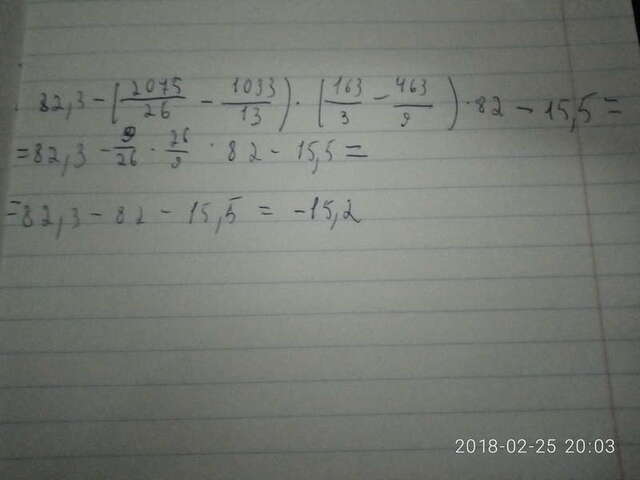 82,3 - (2075/26 - 1033/13) · (163/3 - 463/9) · 82 - 15,5 =
= 82,3 - 9/26 · 26/9 · 82 - 15,5 =
= 82,3 - 82 - 15,5 = -15,2
2018-02-25 20:03